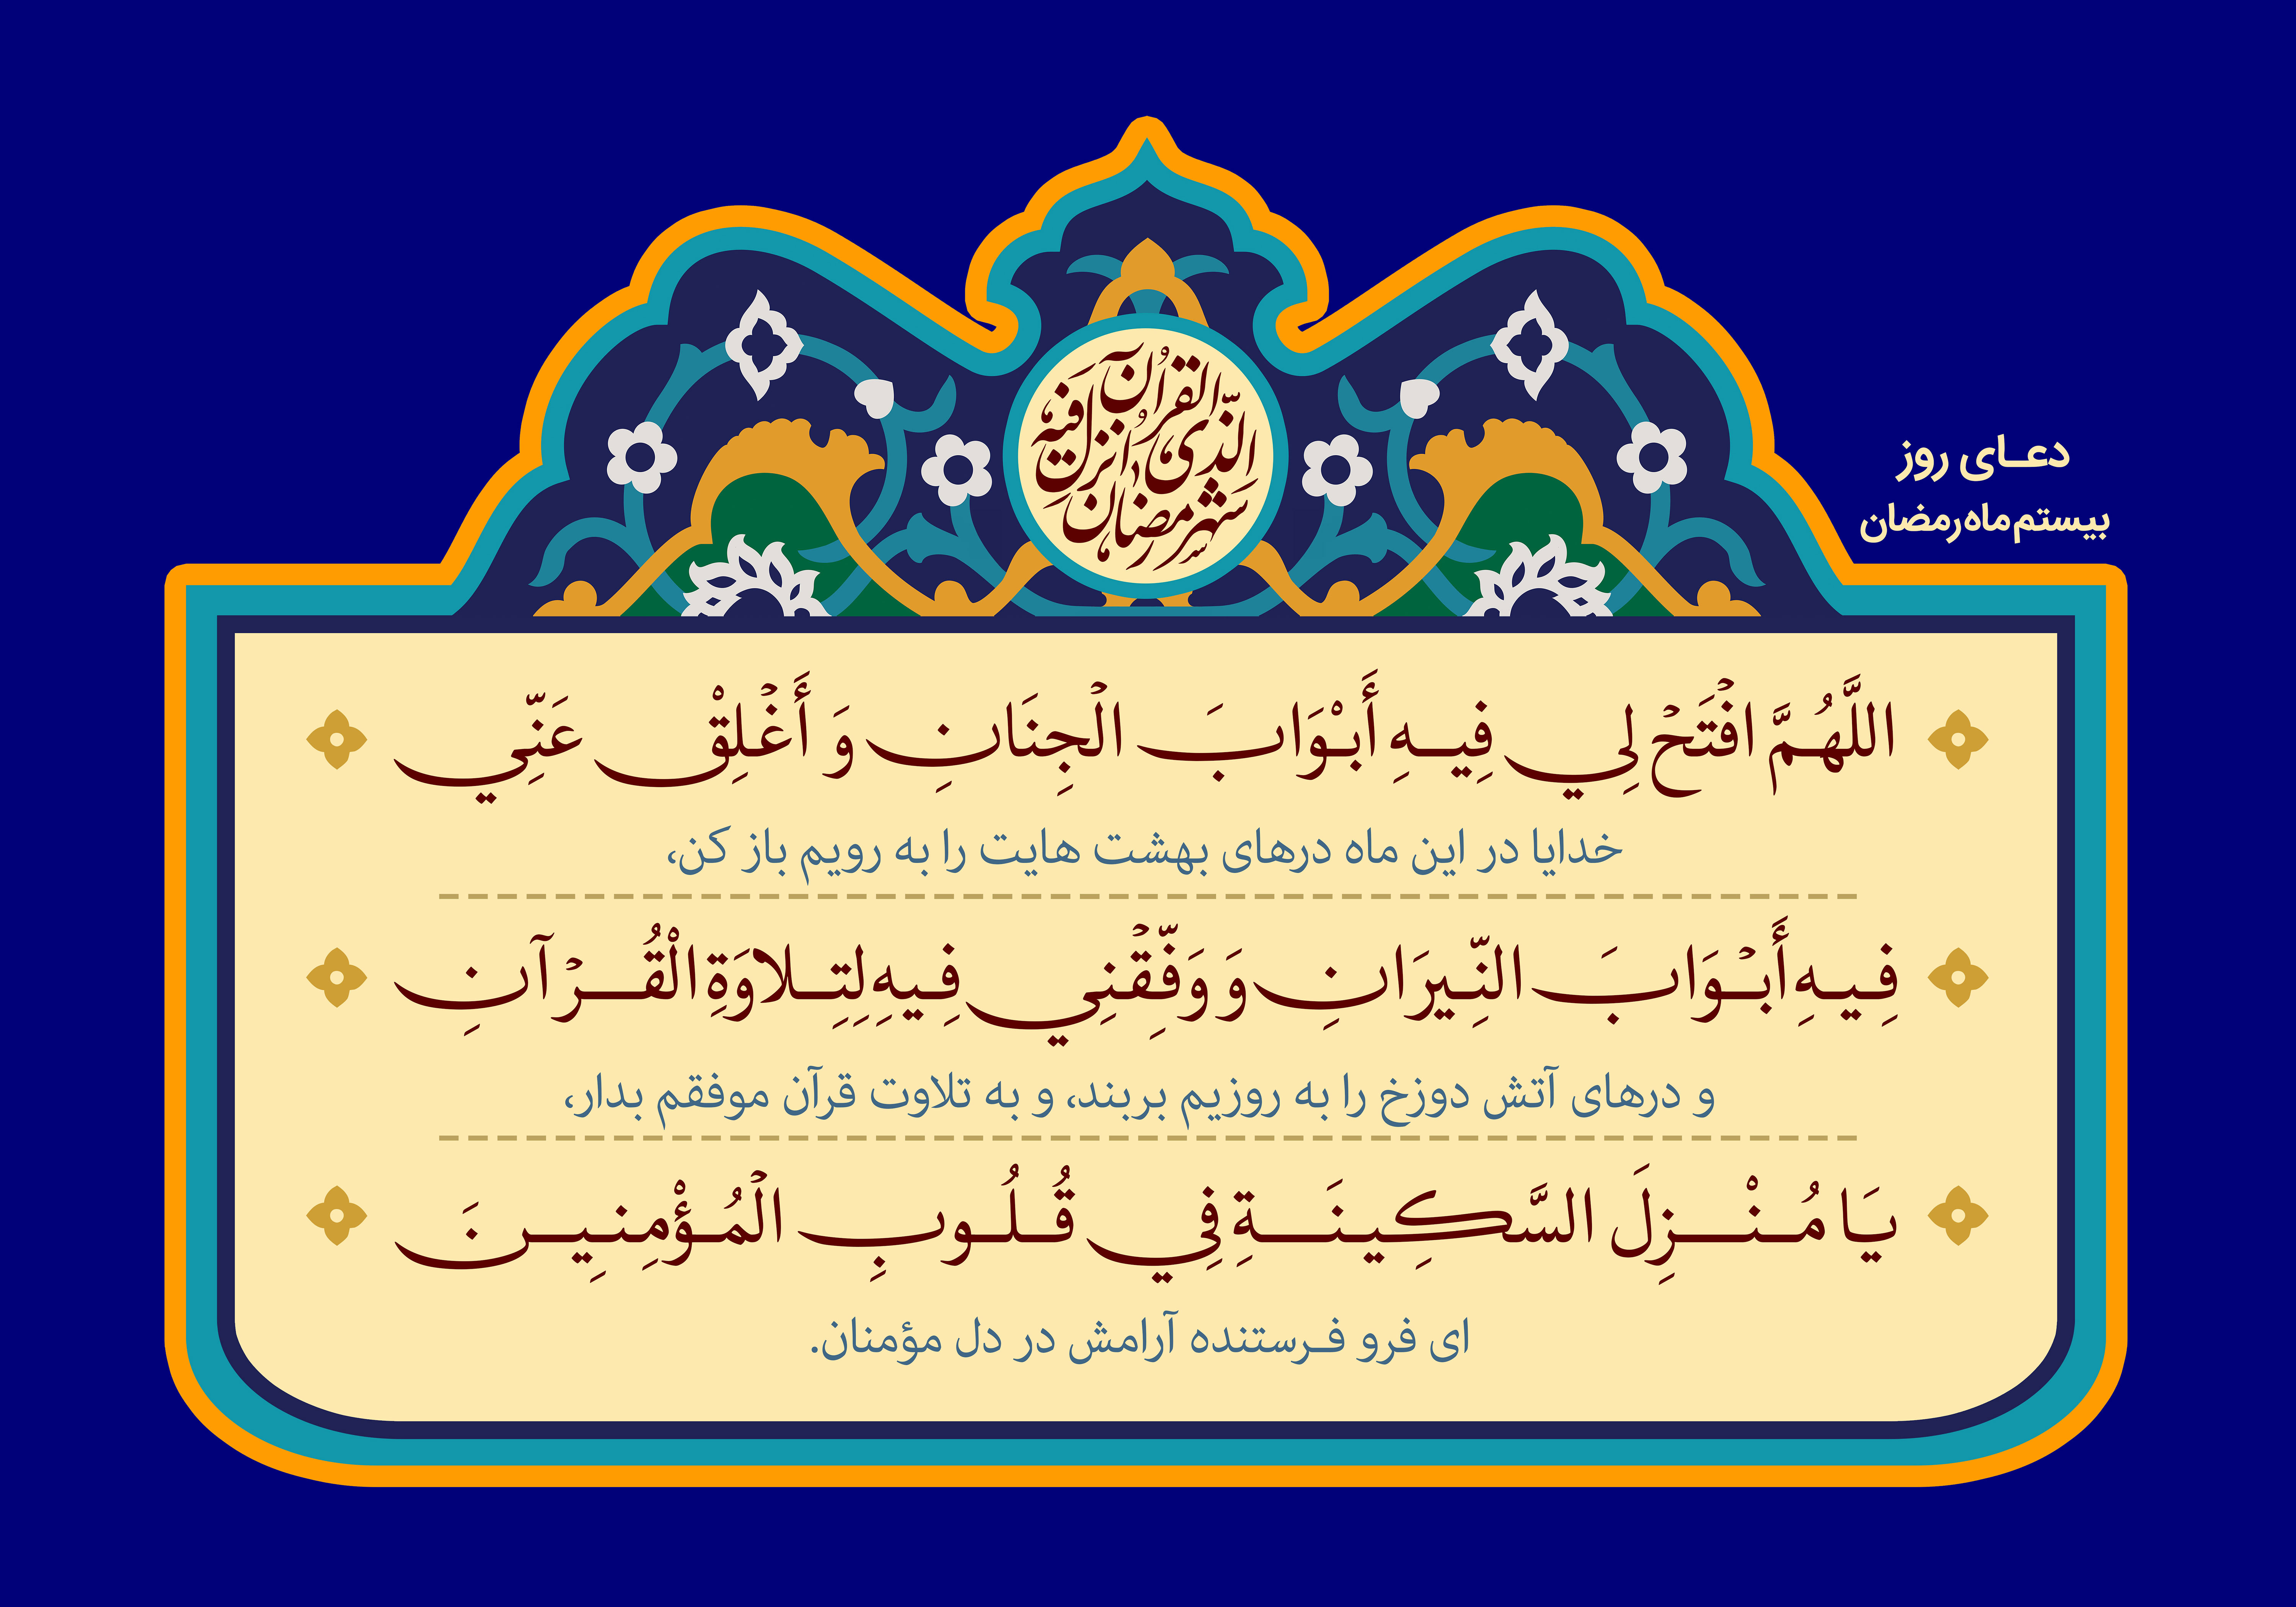 شهر رمضان الذي أنزل فيه القرآن
دعای روز
بیستم ماه رمضان
اللَّهُمَّ افْتَحْ لِي فِيهِ أَبْوَابَ الْجِنَانِ وَ أَغْلِقْ عَنِّي
خدایا در این ماه درهای بهشت هایت را به رویم باز کن،
فِيهِ أَبْوَابَ النِّيرَانِ وَ وَفِّقْنِي فِيهِ لِتِلاوَةِ الْقُرْآنِ
و درهای آتش دوزخ را به روزیم بربند، و به تلاوت قرآن موفقم بدار،
يَا مُنْزِلَ السَّكِينَةِ فِي قُلُوبِ الْمُؤْمِنِينَ
ای فرو فرستنده آرامش در دل مؤمنان.